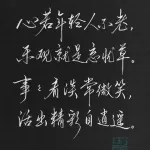 心若年轻人不老，
乐观就是忘忧草。
事事看淡常微笑，
活出精彩自逍遥。